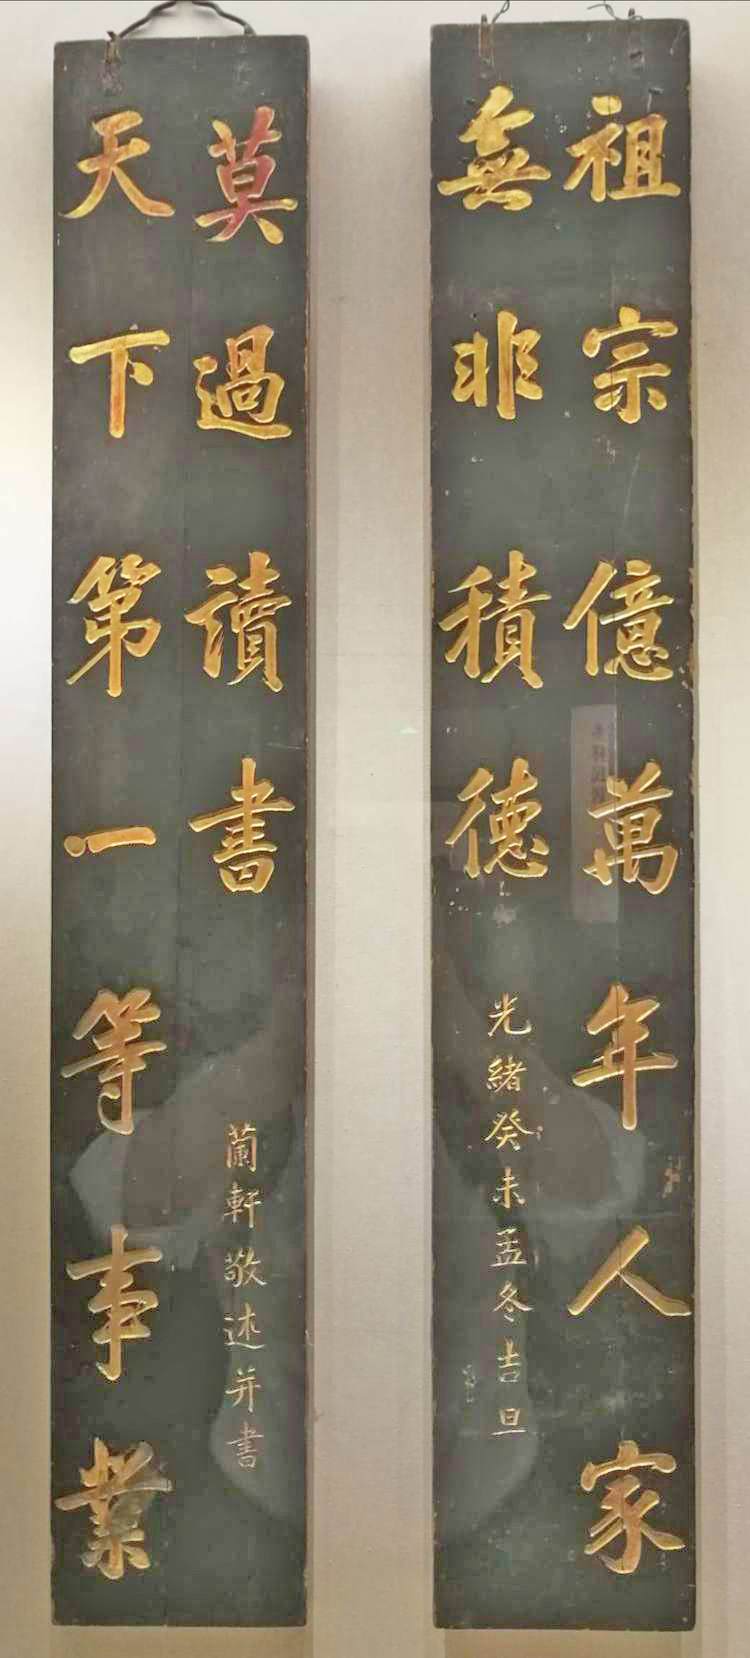 祖宗億萬年人家
無非積德
光緒癸未孟冬吉旦
天下第一等事業
莫過讀書
蘭軒敬述并書